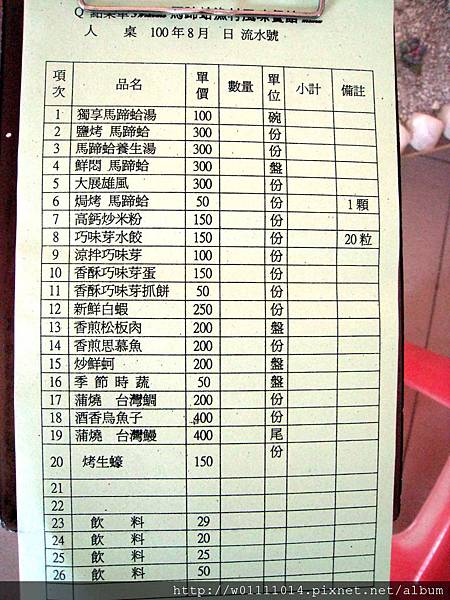 人 桌 100年8月 日 流水號
項次 品名 單價 數量 單位 小計 備註
1 獨享馬蹄蛤湯 100 碗
2 鹽烤 馬蹄蛤 300 份
3 馬蹄蛤養生湯 300 份
4 鮮悶 馬蹄蛤 300 盤
5 大展雄風 300 份
6 焗烤 馬蹄蛤 50 份 1顆
7 高鈣炒米粉 150 份
8 巧味芽水餃 150 份 20粒
9 涼拌巧味芽 100 份
10 香酥巧味芽蛋 150 份
11 香酥巧味芽抓餅 50 份
12 新鮮白蝦 250 份
13 香煎松板肉 200 盤
14 香煎思慕魚 200 份
15 炒鮮蚵 200 盤
16 季 節 時 蔬 50 盤
17 蒲燒 台灣鯛 200 份
18 酒香烏魚子 400 份
19 蒲燒 台灣鰻 400 尾
20 烤生蠔 150 份
21
22
23 飲 料 29
24 飲 料 20
25 飲 料 25
26 飲 料 50
http://w01111014.pixnet.net/album